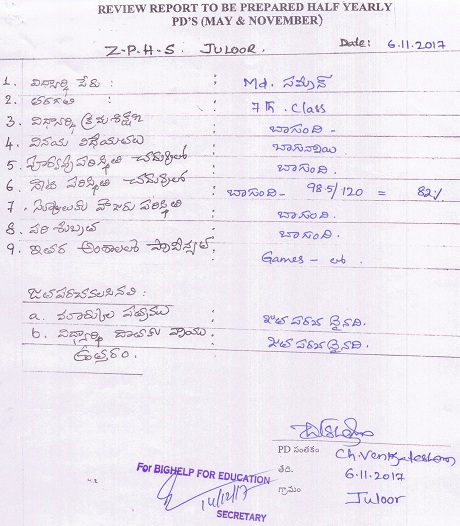 REVIEW REPORT TO BE PREPARED HALF YEARLY
PD'S (MAY & NOVEMBER)
Z-P-H-S. JULOOR. Date: 6.11.2017
1. విద్యార్థి పేరు : Md.
2. తరగతి : 7th. Class
3. విద్యార్థి క్రమశిక్షణ : బాగుంది -
4. వినయ విధేయతలు : బాగున్నాయి
5. పరిస్థితి చదువులో : బాగుంది.
6. పరిస్థితి చదువులో : బాగుంది - 98.5/120 = 82%
7. హాజరు పరిస్థితి : బాగుంది.
8. పరిశుభ్రత : బాగుంది.
9. ఇతర అంశాలలో : Games - లో
జతపరచవలసినవి :
a. మార్కుల పత్రము : జత పరచ దైనది.
b. విద్యార్థి దాతకు వ్రాయు : జత పరచ దైనది.
ఉత్తరం.
PD సంతకం Ch. Venkateshwar
తేది. 6.11.2017
గ్రామం Juloor
For BIGHELP FOR EDUCATION
14/12/17
SECRETARY